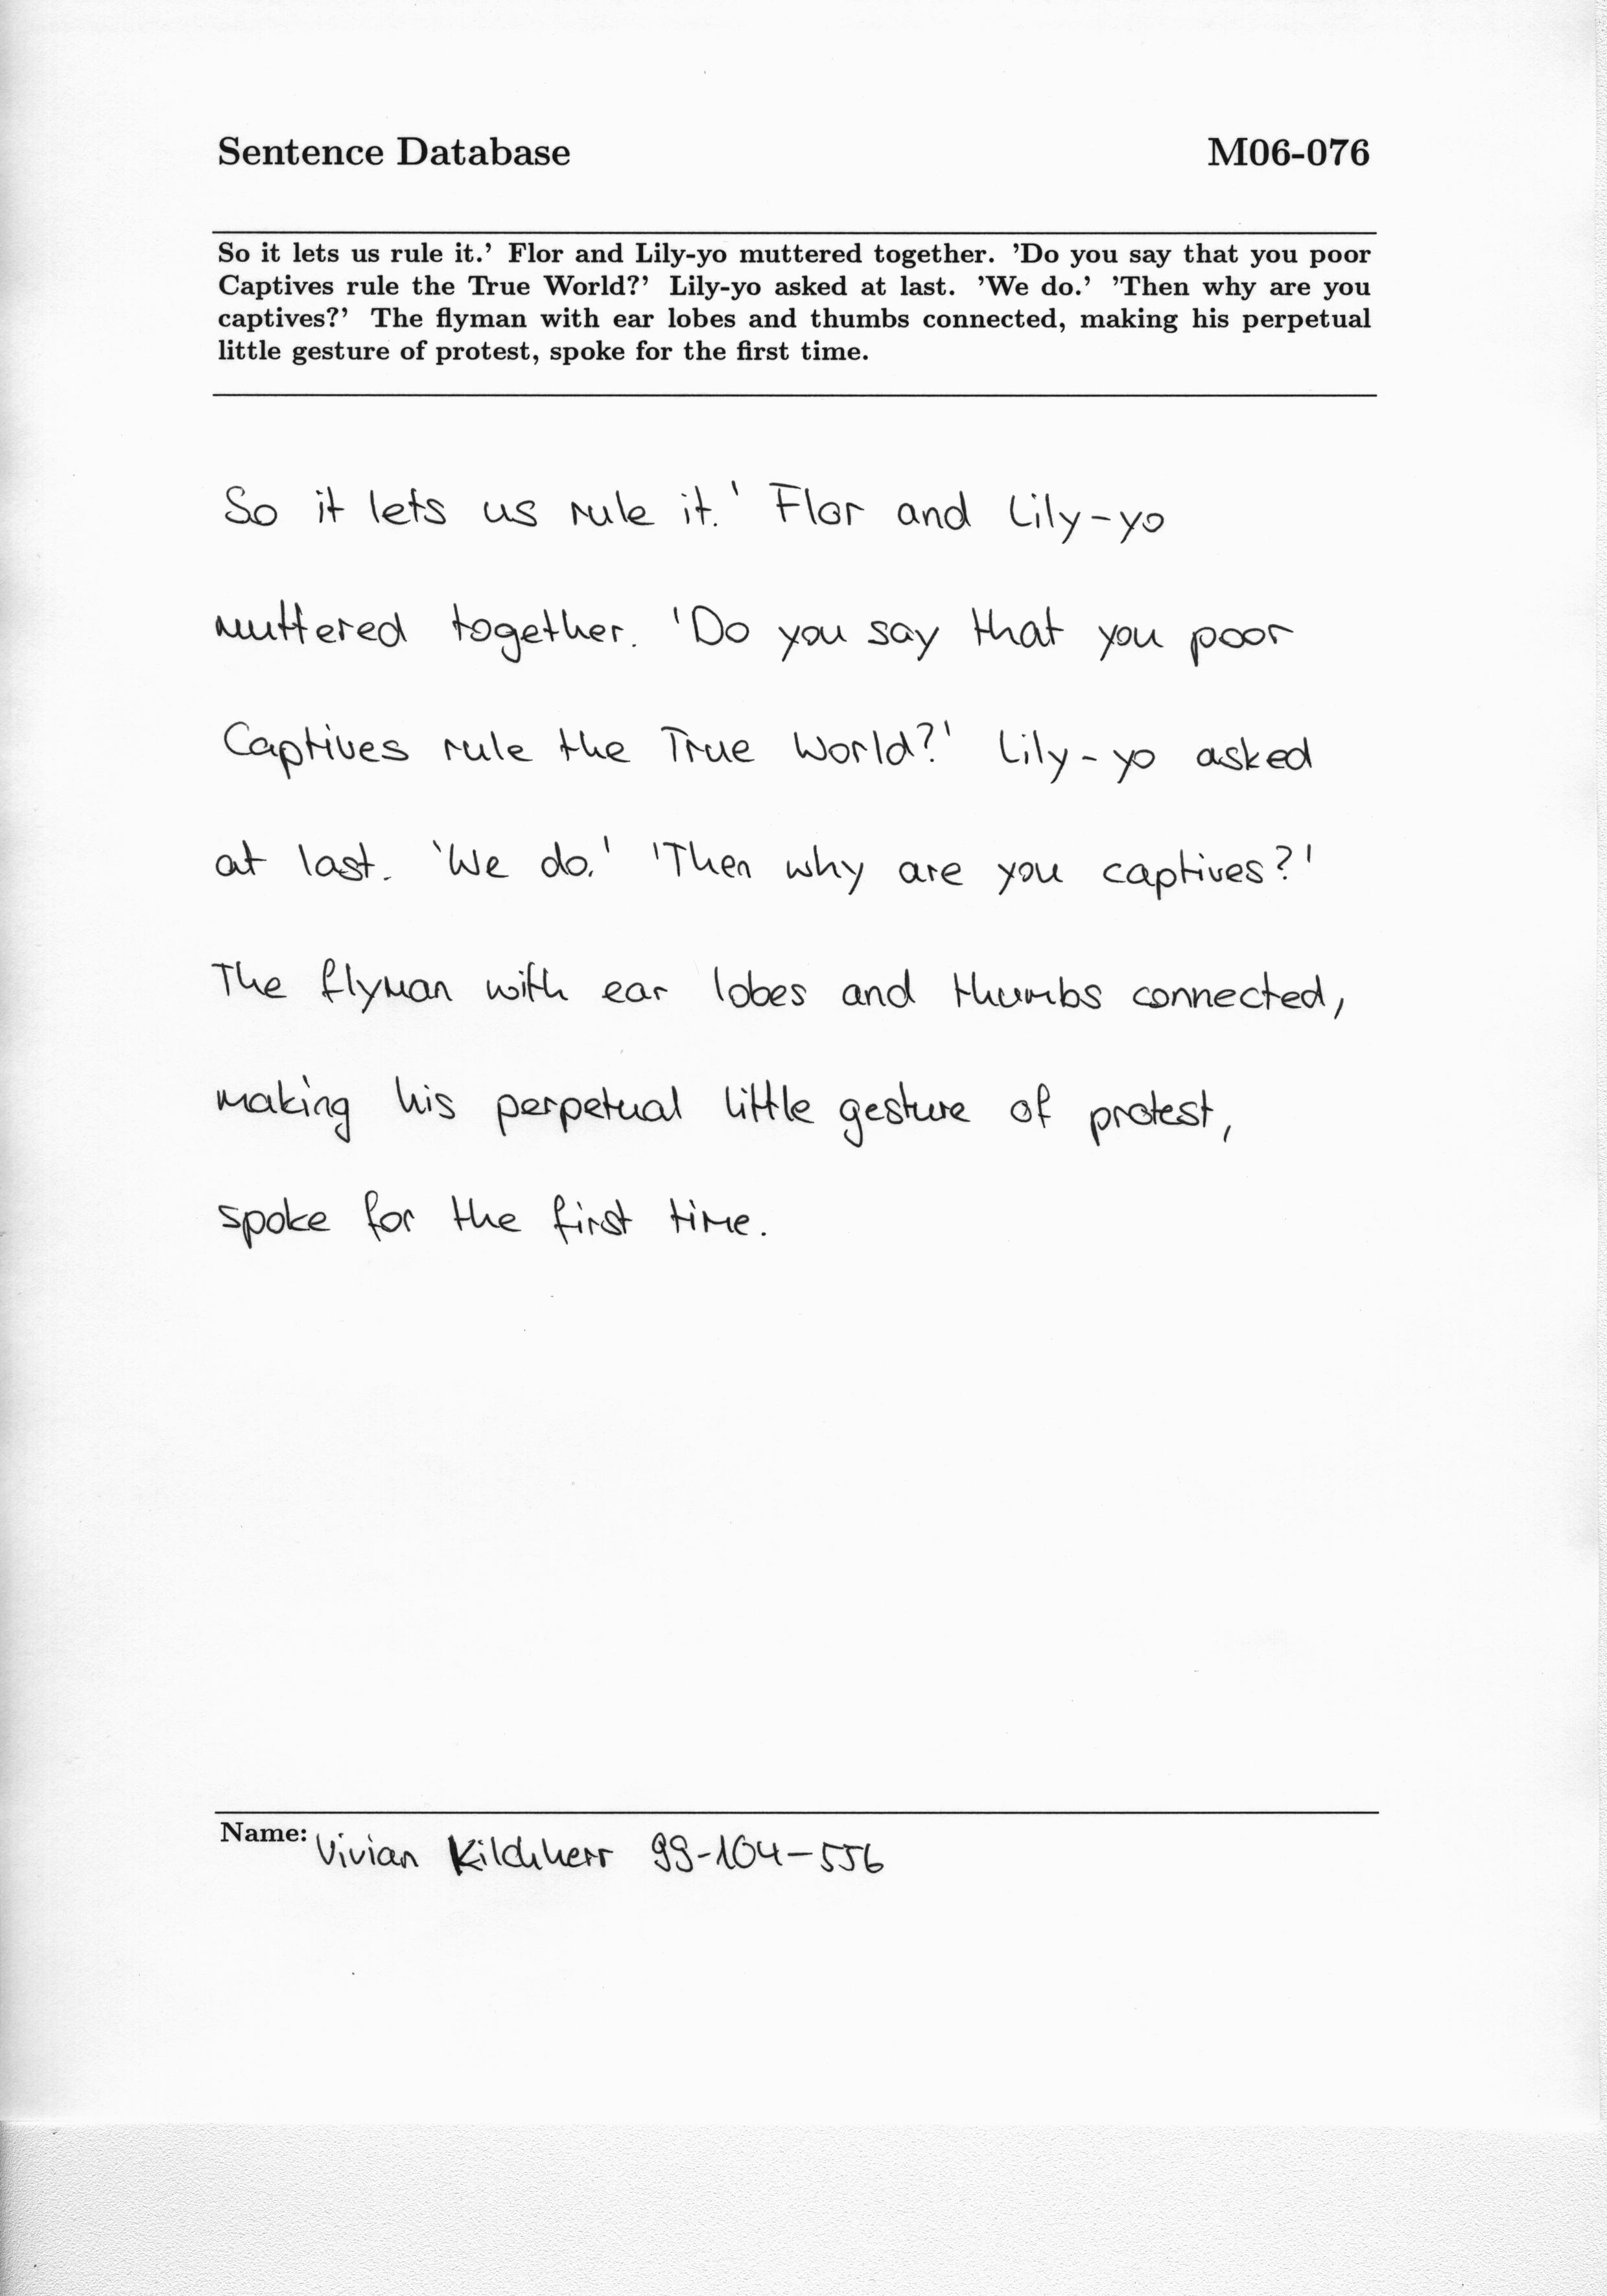 Sentence Database M06-076
So it lets us rule it.’ Flor and Lily-yo muttered together. ’Do you say that you poor
Captives rule the True World?’ Lily-yo asked at last. ’We do.’ ’Then why are you
captives?’ The flyman with ear lobes and thumbs connected, making his perpetual
little gesture of protest, spoke for the first time.
So it lets us rule it.' Flor and Lily-yo
muttered together. 'Do you say that you poor
Captives rule the True World?' Lily-yo asked
at last. 'We do.' 'Then why are you captives?'
The flyman with ear lobes and thumbs connected,
making his perpetual little gesture of protest,
spoke for the first time.
Name: Vivian Kilchherr 99-104-556